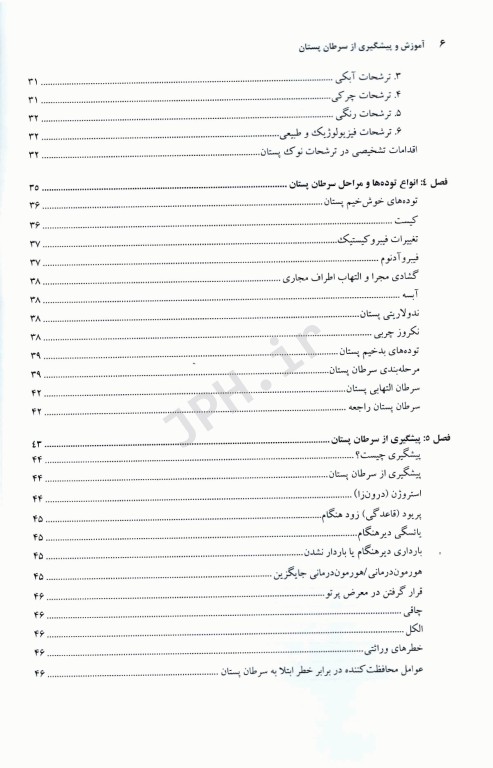 ۶ آموزش و پیشگیری از سرطان پستان
۳. ترشحات آبکی ........ ۳۱
۴. ترشحات چرکی ........ ۳۱
۵. ترشحات رنگی ........ ۳۲
۶. ترشحات فیزیولوژیک و طبیعی ........ ۳۲
اقدامات تشخیصی در ترشحات نوک پستان ........ ۳۲
فصل ۴: انواع توده‌ها و مراحل سرطان پستان ........ ۳۵
توده‌های خوش‌خیم پستان ........ ۳۶
کیست ........ ۳۶
تغییرات فیبروکیستیک ........ ۳۷
فیبروآدنوم ........ ۳۷
گشادی مجرا و التهاب اطراف مجاری ........ ۳۸
آبسه ........ ۳۸
ندولاریتی پستان ........ ۳۸
نکروز چربی ........ ۳۸
توده‌های بدخیم پستان ........ ۳۹
مرحله‌بندی سرطان پستان ........ ۳۹
سرطان التهابی پستان ........ ۴۲
سرطان پستان راجعه ........ ۴۲
فصل ۵: پیشگیری از سرطان پستان ........ ۴۳
پیشگیری چیست؟ ........ ۴۴
پیشگیری از سرطان پستان ........ ۴۴
استروژن (درون‌زا) ........ ۴۴
پریود (قاعدگی) زود هنگام ........ ۴۵
یائسگی دیرهنگام ........ ۴۵
بارداری دیرهنگام یا باردار نشدن ........ ۴۵
هورمون‌درمانی/هورمون‌درمانی جایگزین ........ ۴۵
قرار گرفتن در معرض پرتو ........ ۴۶
چاقی ........ ۴۶
الکل ........ ۴۶
خطرهای وراثتی ........ ۴۶
عوامل محافظت‌کننده در برابر خطر ابتلا به سرطان پستان ........ ۴۶
JPH.ir